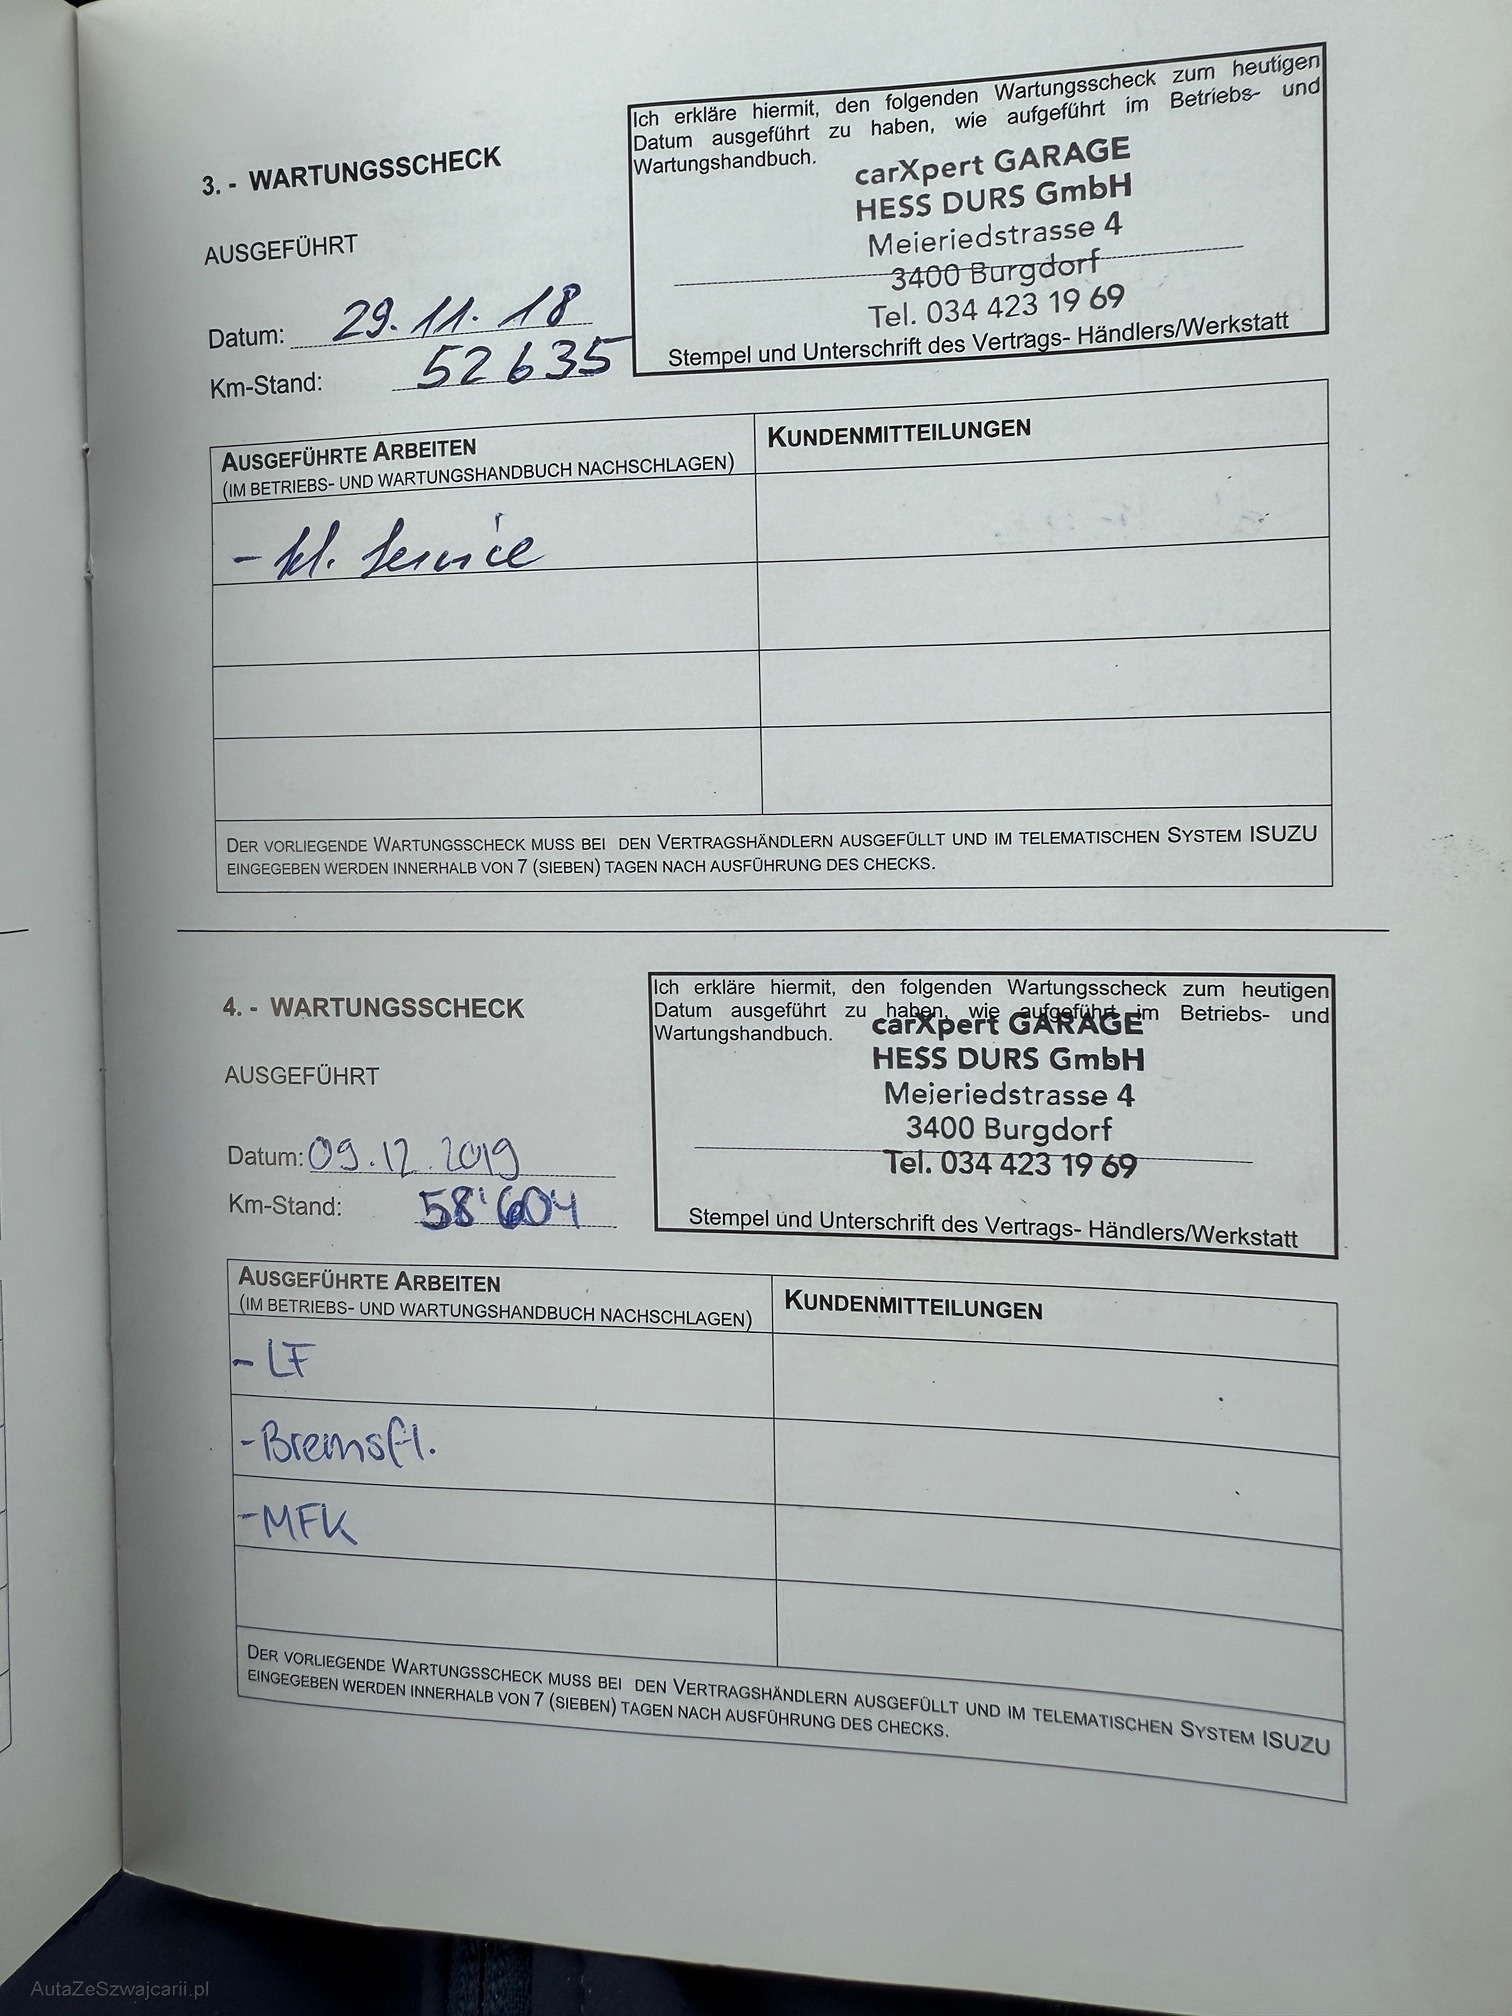 3. - WARTUNGSSCHECK
AUSGEFÜHRT
Datum: 29.11.18
Km-Stand: 52635
Ich erkläre hiermit, den folgenden Wartungsscheck zum heutigen
Datum ausgeführt zu haben, wie aufgeführt im Betriebs- und
Wartungshandbuch.
carXpert GARAGE
HESS DURS GmbH
Meieriedstrasse 4
3400 Burgdorf
Tel. 034 423 19 69
Stempel und Unterschrift des Vertrags- Händlers/Werkstatt
AUSGEFÜHRTE ARBEITEN
(IM BETRIEBS- UND WARTUNGSHANDBUCH NACHSCHLAGEN)
KUNDENMITTEILUNGEN
- kl. Service
DER VORLIEGENDE WARTUNGSSCHECK MUSS BEI DEN VERTRAGSHÄNDLERN AUSGEFÜLLT UND IM TELEMATISCHEN SYSTEM ISUZU
EINGEGEBEN WERDEN INNERHALB VON 7 (SIEBEN) TAGEN NACH AUSFÜHRUNG DES CHECKS.
4. - WARTUNGSSCHECK
AUSGEFÜHRT
Datum: 09.12.2019
Km-Stand: 58'604
Ich erkläre hiermit, den folgenden Wartungsscheck zum heutigen
Datum ausgeführt zu haben, wie aufgeführt im Betriebs- und
Wartungshandbuch.
carXpert GARAGE
HESS DURS GmbH
Meieriedstrasse 4
3400 Burgdorf
Tel. 034 423 19 69
Stempel und Unterschrift des Vertrags- Händlers/Werkstatt
AUSGEFÜHRTE ARBEITEN
(IM BETRIEBS- UND WARTUNGSHANDBUCH NACHSCHLAGEN)
KUNDENMITTEILUNGEN
- LF
- Bremsfl.
- MFK
DER VORLIEGENDE WARTUNGSSCHECK MUSS BEI DEN VERTRAGSHÄNDLERN AUSGEFÜLLT UND IM TELEMATISCHEN SYSTEM ISUZU
EINGEGEBEN WERDEN INNERHALB VON 7 (SIEBEN) TAGEN NACH AUSFÜHRUNG DES CHECKS.
AutaZeSzwajcarii.pl